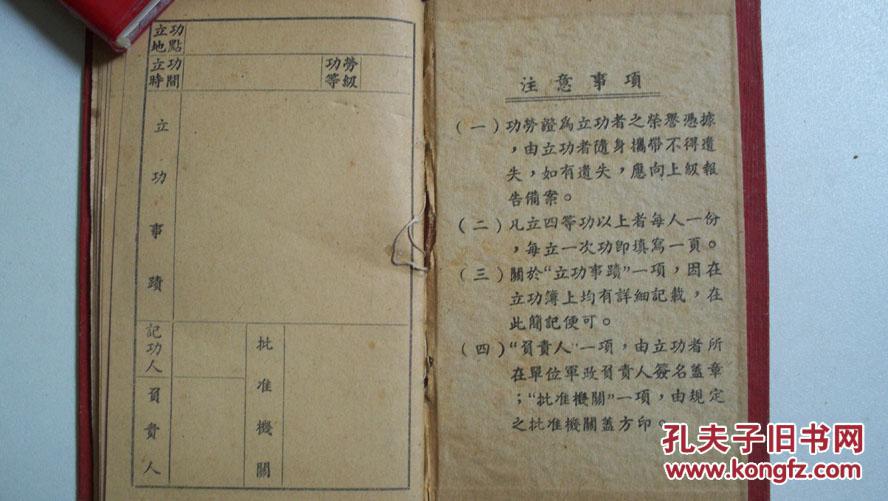 立功地點
立功時間
功勞等級
立功事蹟
記功人
負責人
批准機關
注意事項
(一)功勞證爲立功者之榮譽憑據
，由立功者隨身攜帶不得遺
失，如有遺失，應向上級報
告備案。
(二)凡立四等功以上者每人一份
，每立一次功即填寫一頁。
(三)關於“立功事蹟”一項，因在
立功簿上均有詳細記載，在
此簡記便可。
(四)“負責人”一項，由立功者所
在單位軍政負責人簽名蓋章
；“批准機關”一項，由規定
之批准機關蓋方印。
孔夫子旧书网
www.kongfz.com